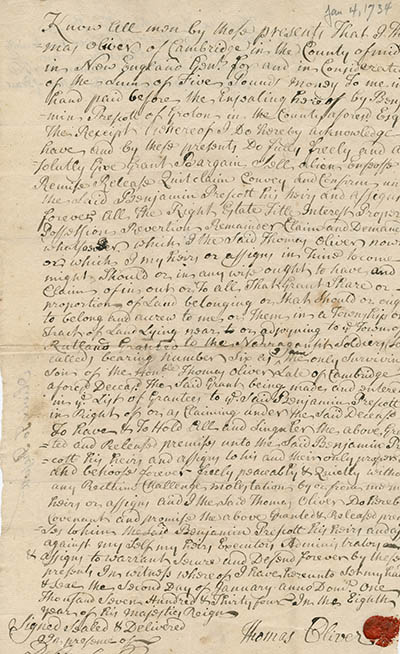 Jan 4, 1734
Know All men by these presents That I Tho
mas Oliver of Cambridge in the County of mid
in New England for and in Considerati
of the Sum of Five Pounds money to me in
hand paid before the Ensealing hereof by Ben
min Prescott of Groton in the County aforesd Esq
The Receipt whereof I Do hereby acknowledge
have and by these presents Do fully freely and a
solutly Give Grant Bargain Sell Alien Enfeoffe
Remise Release Quitclaim Convey and Confirm un
the said Benjamin Prescott his heirs and assigns
forever All the Right Estate Title Interest Proper
Possession Revertion Remainder Claim and Demand
whatsoever which I the Said Thomas Oliver now
or which I my heirs or assigns in time to come
might Should or in any wise ought to have and
Claim of in out or To all That Grant Share or
proportion of Land belonging or that Should or oug
to belong and accrew to me or them in a Township or
Tract of Land Lying near to or adjoyning to ye Town of
Rutland Granted to the Narragansett Soldiers So
called bearing number Six as I am the only Surviving
son of the Honble Thomas Oliver Late of Cambridge
aforesd Deceasd The Said Grant being made and entered
in ye List of Grantees to ye Said Benjamin Prescott
in Right of or as Claiming under the Said Deceasd
To have & To Hold All and Singular the above Gran
ted and Released premises unto the Said Benjamin Pr
cott his heirs and assigns to his and their only proper
and behoofe forever freely peaceably & Quietly witho
any Reclaim Challenge molestation by or from me m
heirs or assigns and I the Said Thomas Oliver Do hereb
Covenant and promise the above Granted & Released pre
ses to him the said Benjamin Prescott his heirs and a
against my self my heirs Executors Administrators
& assigns to Warrant Secure and Defend forever by these
presents In witness whereof I have hereunto set my han
& Seal the Second Day of January anno Domi. One
Thousand Seven Hundred & Thirty four In the Eighth
year of his Majesties Reign
Signed Sealed & Delivered
In presence of
Thomas Oliver